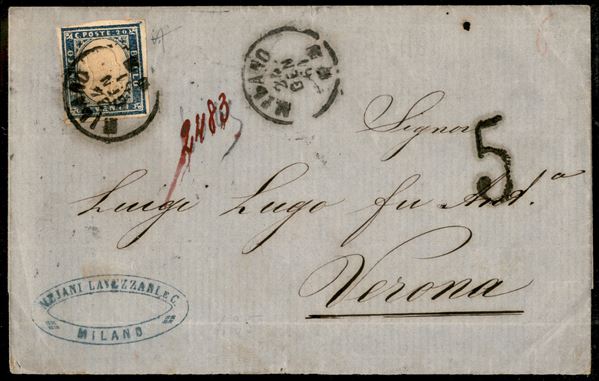 C. POSTE 20
MILANO
GEN
MILANO
GEN
2483
Signor
5
Luigi Lugo fu Ant.ª
Verona
MEJANI LAVEZZARI E C.
MILANO